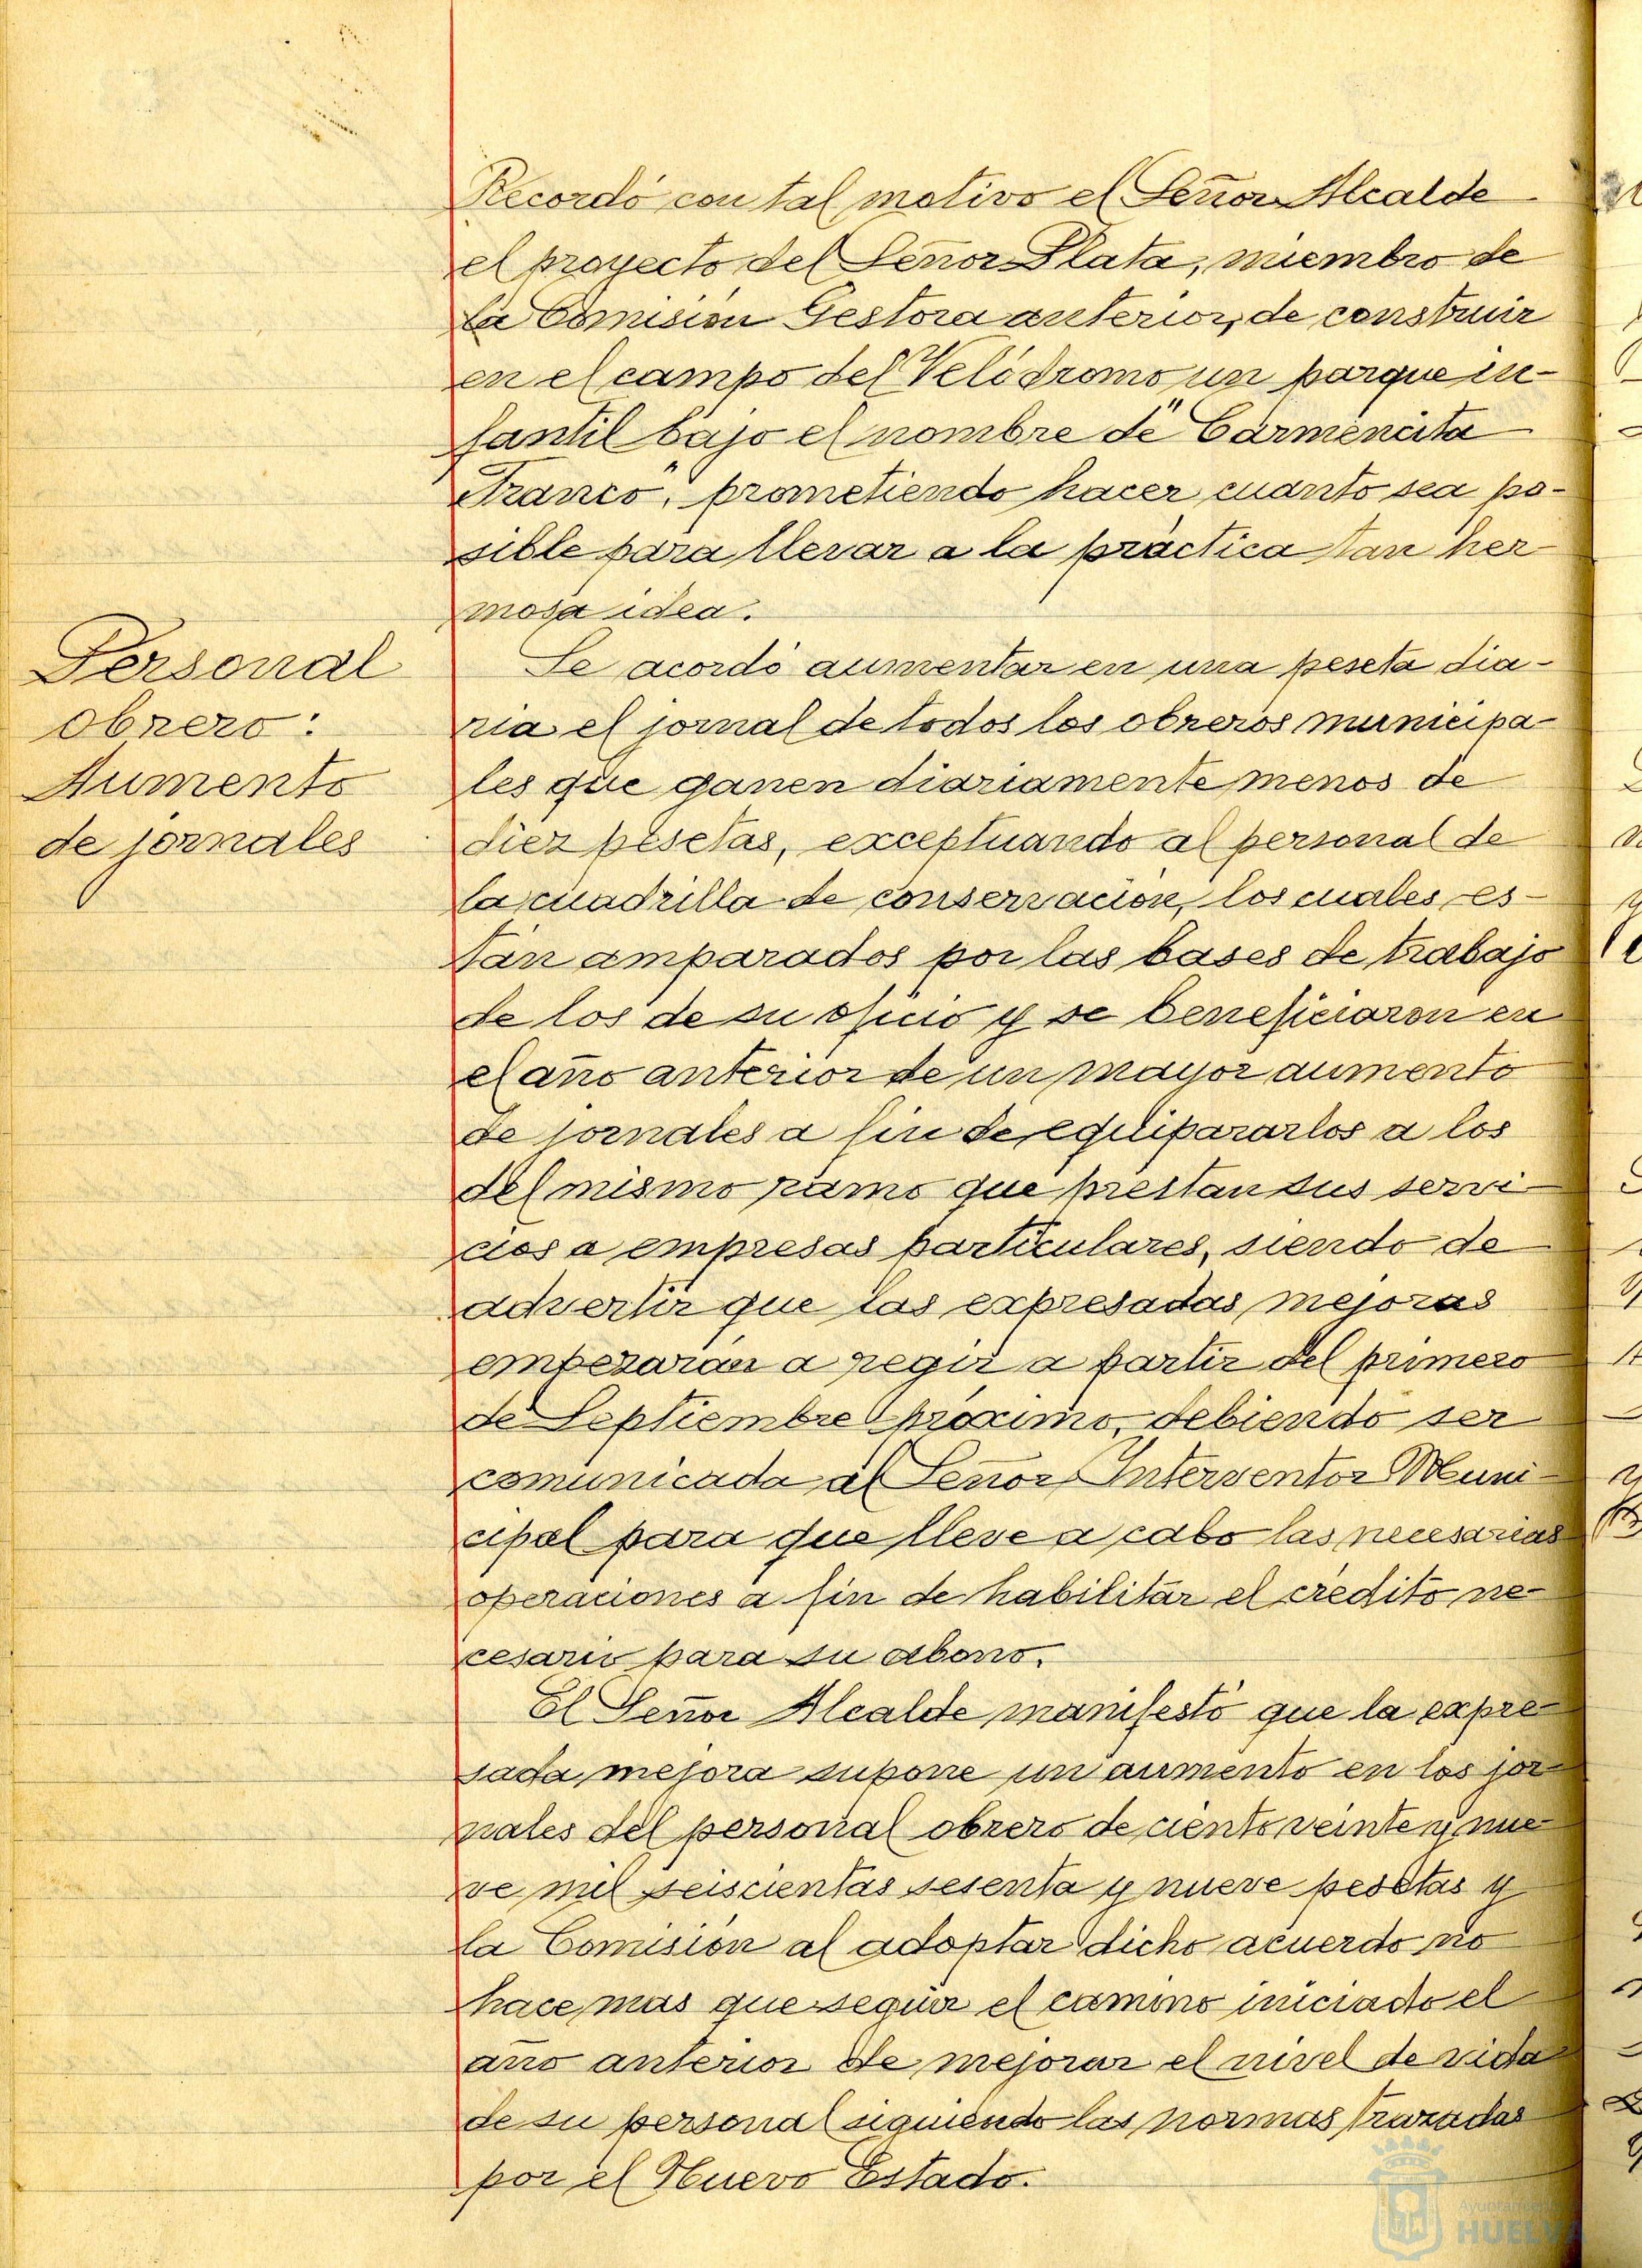 Recordó con tal motivo el Señor Alcalde
el proyecto del Señor Plata, miembro de
la Comisión Gestora anterior, de construir
en el campo del Velódromo un parque in-
fantil bajo el nombre de "Carmencita
Franco", prometiendo hacer cuanto sea po-
sible para llevar a la práctica tan her-
mosa idea.
Personal
obrero:
Aumento
de jornales
Se acordó aumentar en una peseta dia-
ria el jornal de todos los obreros municipa-
les que ganen diariamente menos de
diez pesetas, exceptuando al personal de
la cuadrilla de conservación, los cuales es-
tán amparados por las bases de trabajo
de los de su oficio y se beneficiaron en
el año anterior de un mayor aumento
de jornales a fin de equipararlos a los
del mismo ramo que prestan sus servi-
cios a empresas particulares, siendo de
advertir que las expresadas mejoras
empezarán a regir a partir del primero
de Septiembre próximo, debiendo ser
comunicada al Señor Interventor Muni-
cipal para que lleve a cabo las necesarias
operaciones a fin de habilitar el crédito ne-
cesario para su abono.
El Señor Alcalde manifestó que la expre-
sada mejora supone un aumento en los jor-
nales del personal obrero de ciento veinte y nue-
ve mil seiscientas sesenta y nueve pesetas y
la Comisión al adoptar dicho acuerdo no
hace mas que seguir el camino iniciado el
año anterior de mejorar el nivel de vida
de su personal siguiendo las normas trazadas
por el Nuevo Estado.
Ayuntamiento de
HUELVA